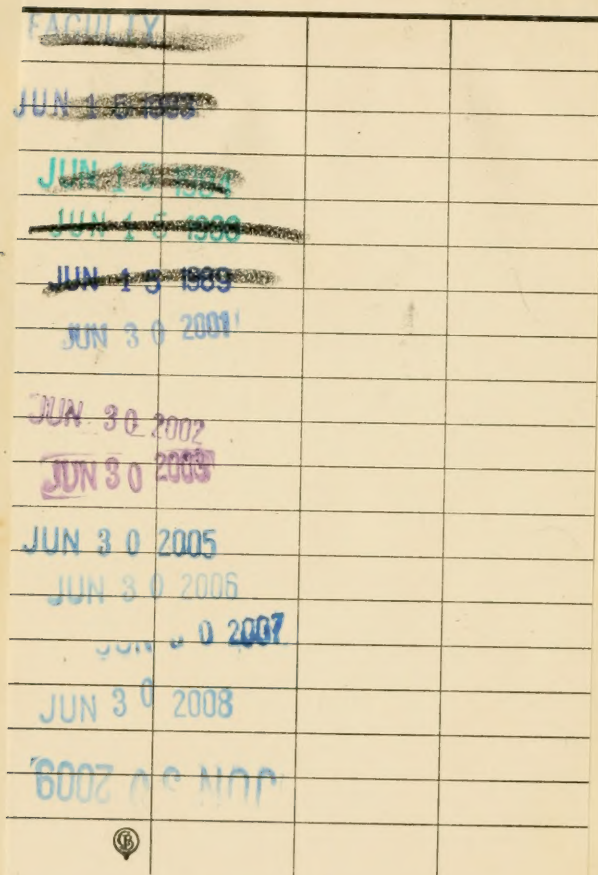 FACULTY
JUN 15
JUN 15 1984
JUN 15 1988
JUN 15 1989
JUN 30 2001
JUN 30 2002
JUN 30 2003
JUN 30 2005
JUN 30 2006
JUN 30 2007
JUN 30 2008
JUN 30 2009